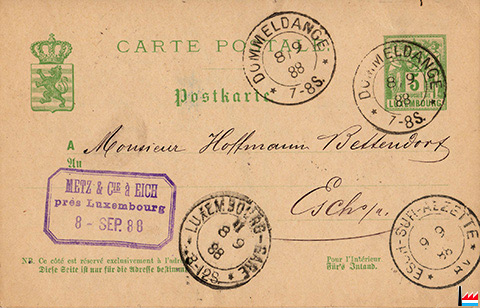 CARTE POSTALE.
DOMMELDANGE
8 9
88
7-8S.
DOMMELDANGE
8 9
88
7-8S.
5
LUXEMBOURG
Postkarte
A
An
Monsieur Hoffmann Bettendorf
Esch s/a.
METZ & CIE à EICH
près Luxembourg
8 - SEP. 88
LUXEMBOURG-GARE
8 9
88
ESCH-SUR-ALZETTE
9 9
88
NB. Ce côté est réservé exclusivement à l'adresse
Diese Seite ist nur für die Adresse bestimmt
Pour l'Intérieur
Für's Inland.